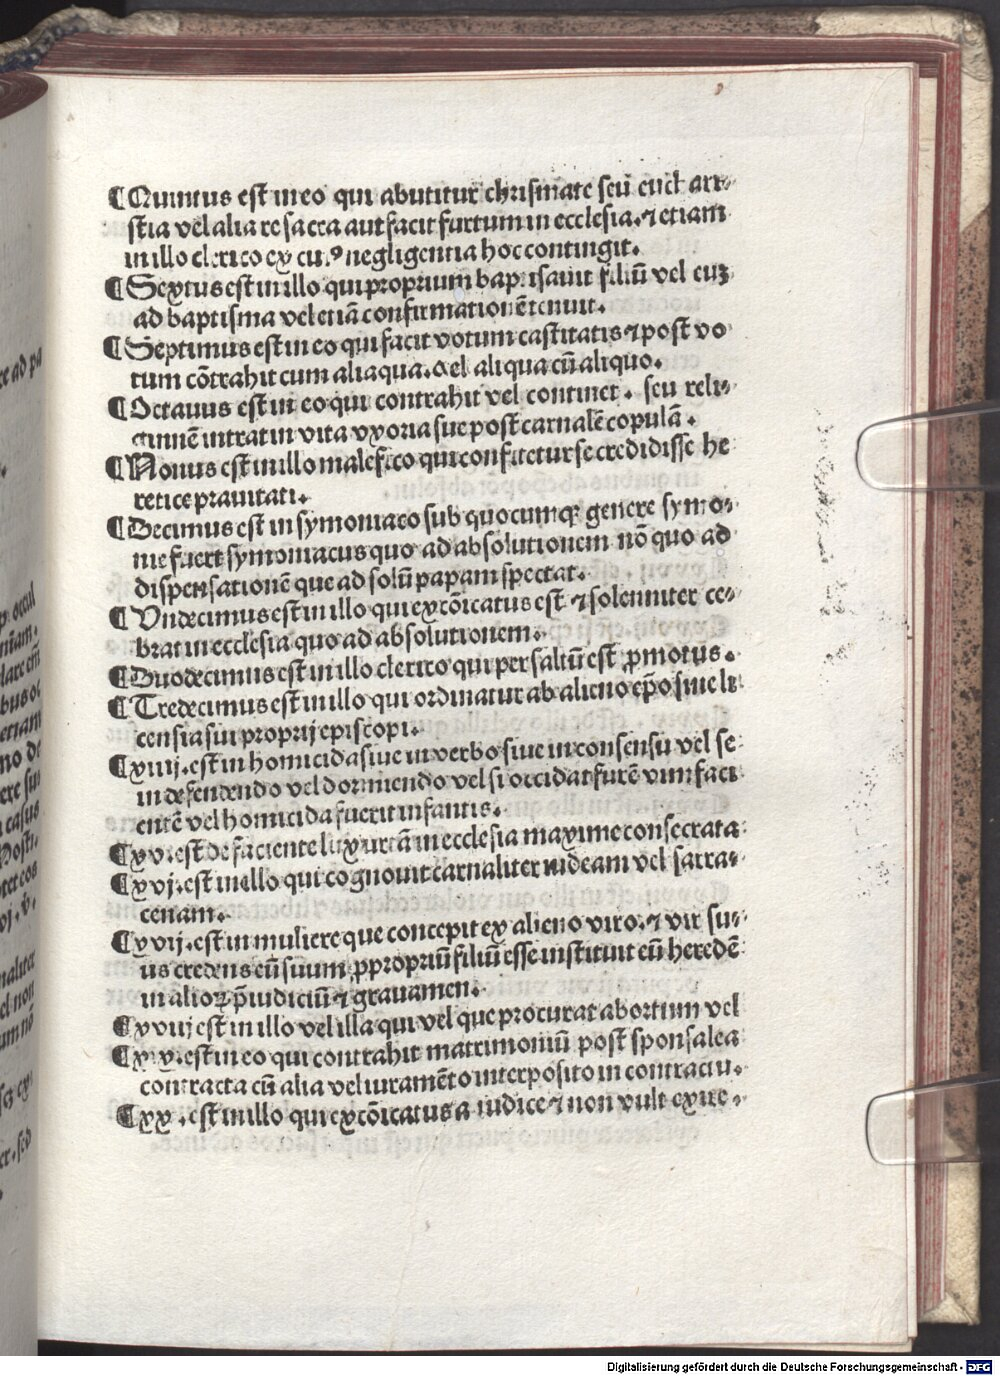 ¶Quintus est in eo qui abutitur chrismate seu eucharistia
stia vel alia re sacra aut facit furtum in ecclesia. ⁊ etiam
in illo clerico ex cu.ꝰ negligentia hoc contingit.
¶Sextus est in illo qui proprium baptisauit filiū vel eū
ad baptisma vel etiā confirmationē tenuit.
¶Septimus est in eo qui facit votum castitatis ⁊ post vo
tum cōtrahit cum aliaqua. vel aliqua cū aliquo.
¶Octauus est in eo qui contrahit vel continet. seu reli⸗
ginnē intrat in vita vxoria sue post carnalē copulā.
¶Nonus est in illo malefico qui confitetur se credidisse he
retice prauitati.
¶Decimus est in symoniaco sub quocumqꝫ genere symo⸗
nie fuerit symoniacus quo ad absolutionem nō quo ad
dispensationē que ad solū papam spectat.
¶Vndecimus est in illo qui excōicatus est ⁊ solenniter ce⸗
brat in ecclesia quo ad absolutionem.
¶Duodecimus est in illo clerico qui per saltū est ꝓmotus.
¶Tredecimus est in illo qui ordinatur ab alieno ep̄o sine li
censia sui proprij episcopi.
¶xiiij. est in homicida siue in verbo siue in consensu vel se
in defendendo vel dormiendo vel si occidat furē vim faci
entē vel homicida fuerit infantis.
¶xv. est de faciente luxuriā in ecclesia maxime consecrata
¶xvj. est in illo qui cognouit carnaliter iudeam vel sarra⸗
cenam.
¶xvij. est in muliere que concepit ex alieno viro. ⁊ vir su⸗
us credens eū suum ꝓpropriū filiū esse instituit eū heredē
in alioꝝ p̄iudiciū ⁊ grauamen.
¶xviij est in illo vel illa qui vel que procurat abortum vel
¶xix. est in eo qui contrahit matrimoniū post sponsalea
contracta cū alia vel iuramēto interposito in contractu.
¶xx. est in illo qui excōicatus a iudice ⁊ non vult exire.
Digitalisierung gefördert durch die Deutsche Forschungsgemeinschaft - DFG